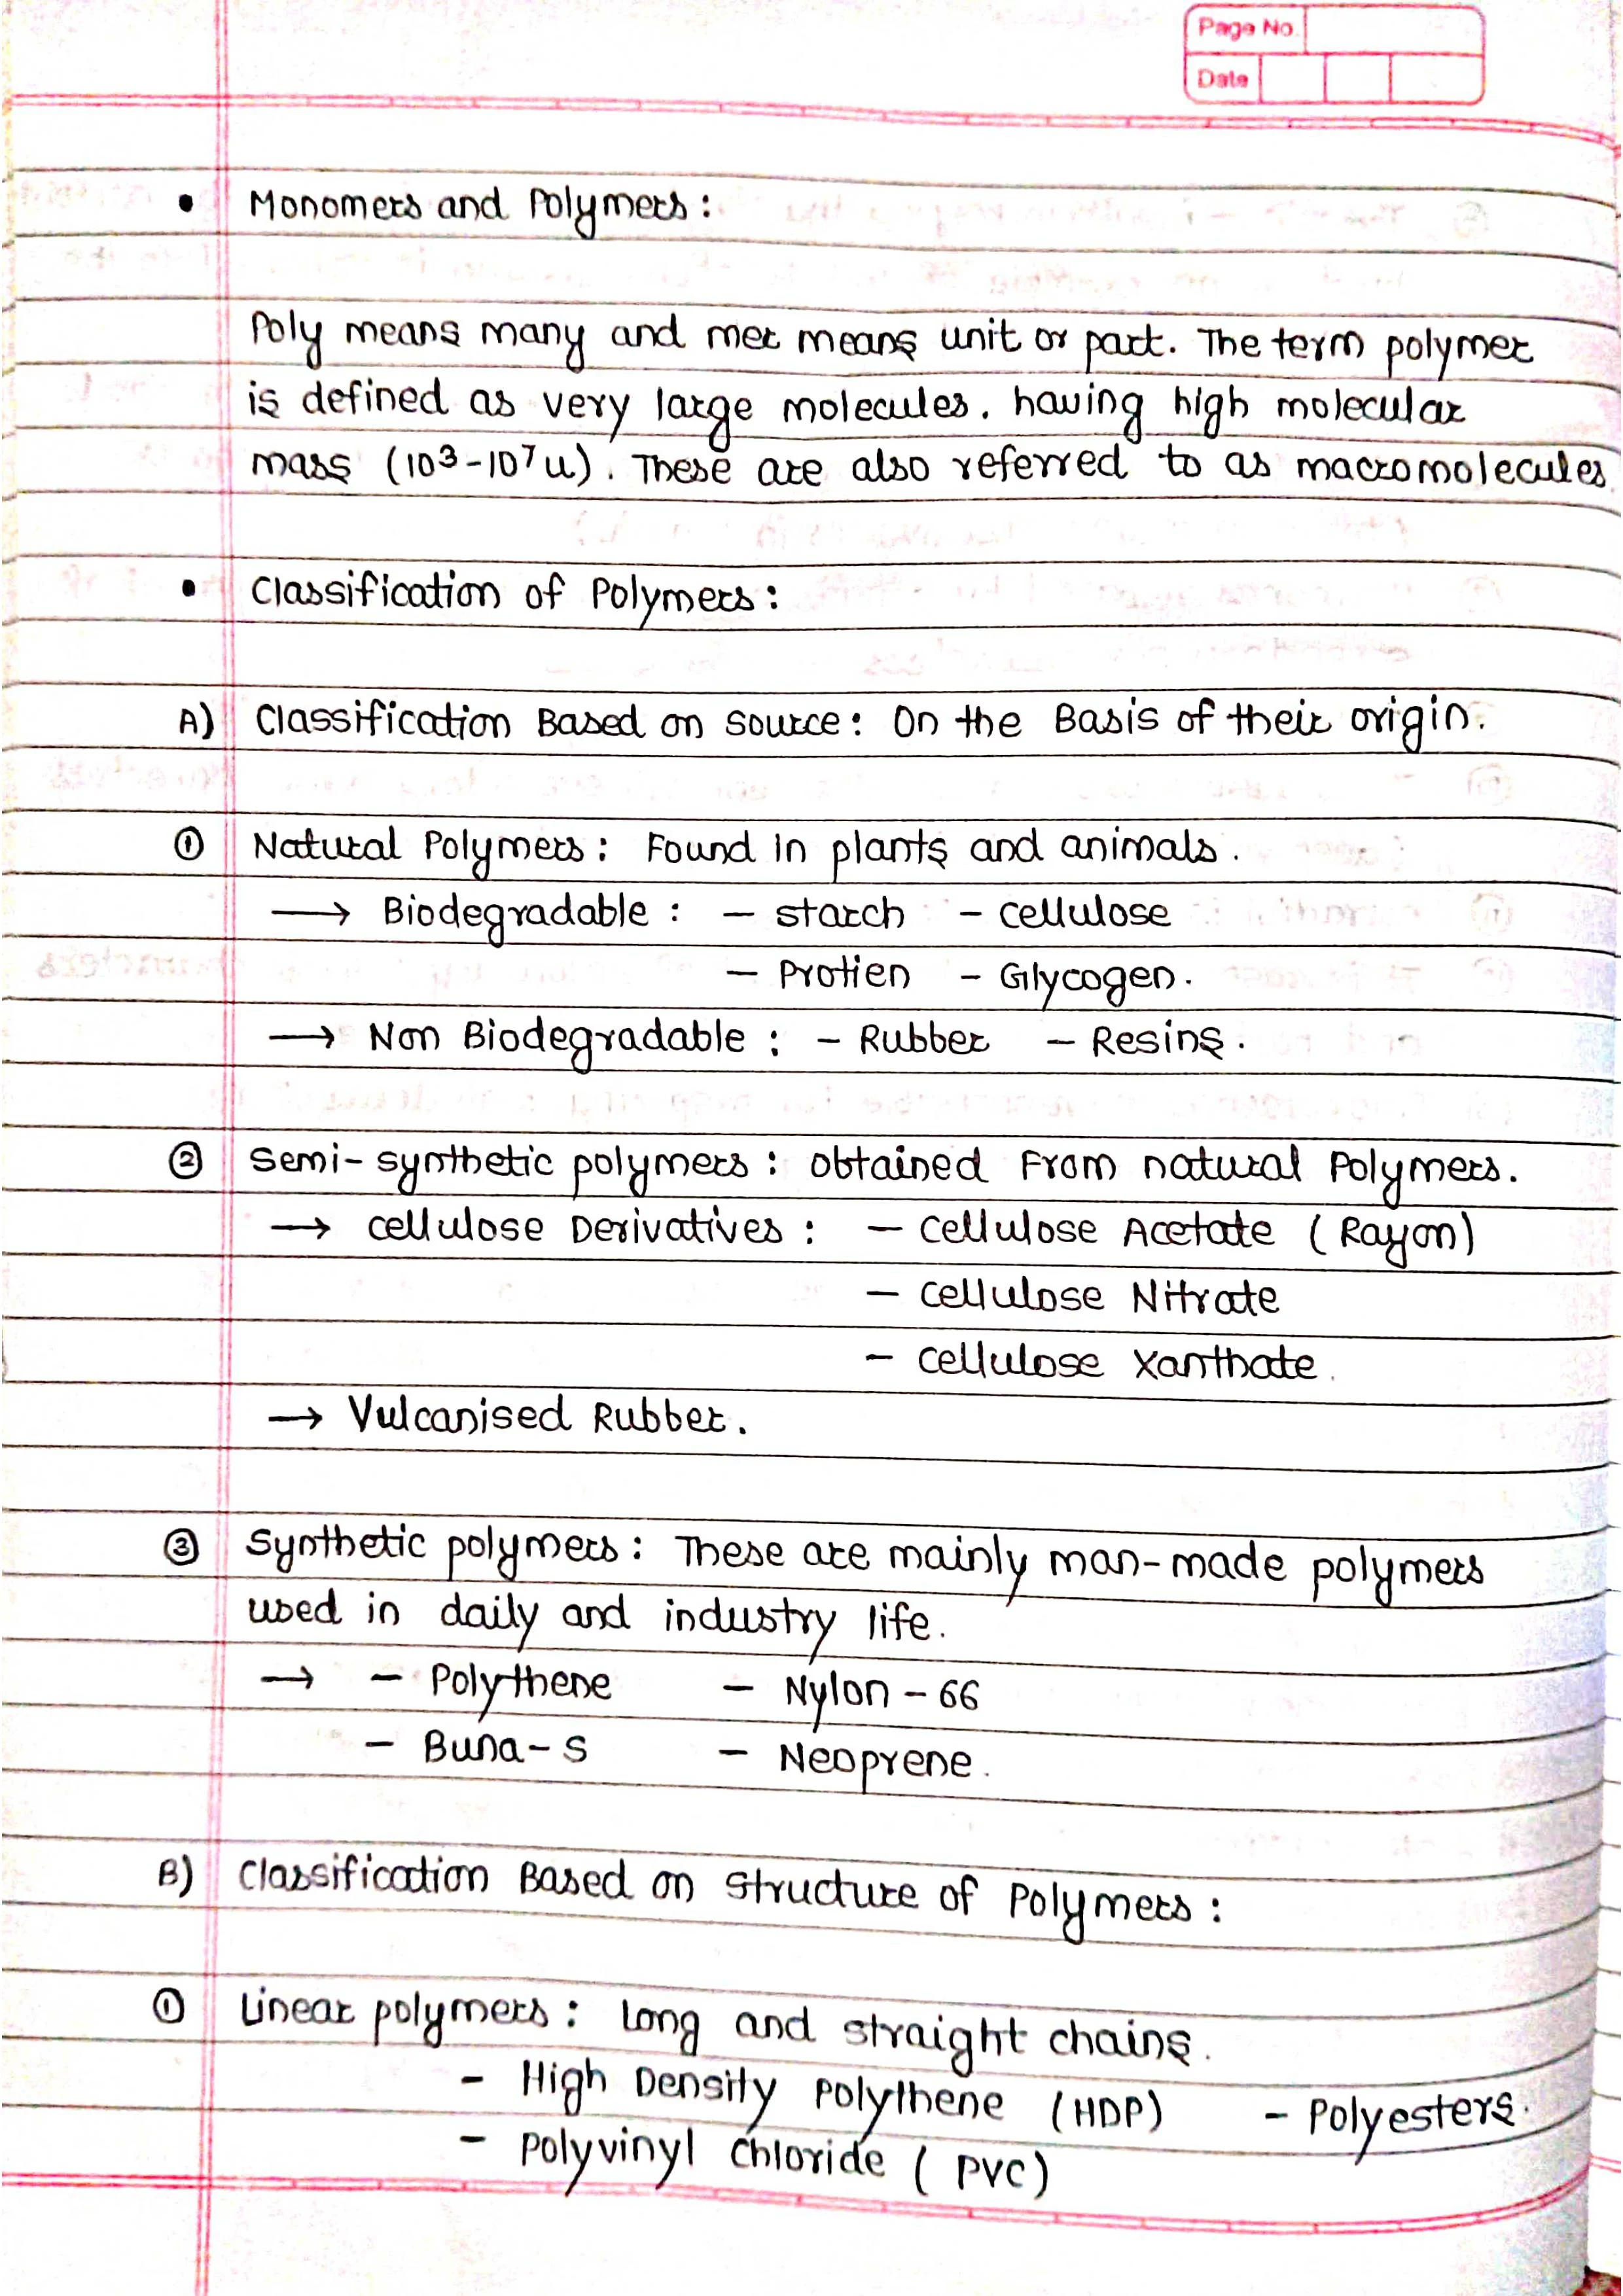 Page No.
Date
• Monomers and Polymers :
Poly means many and mer means unit or part. The term polymer
is defined as very large molecules. having high molecular
mass (10³-10⁷u). These are also referred to as macromolecules.
• Classification of Polymers :
A) Classification Based on source : On the Basis of their origin.
① Natural Polymers : Found in plants and animals.
→ Biodegradable : – starch – cellulose
– Protien – Glycogen.
→ Non Biodegradable : – Rubber – Resins.
② Semi-synthetic polymers : obtained From natural Polymers.
→ cellulose Derivatives : – cellulose Acetate (Rayon)
– cellulose Nitrate
– cellulose Xanthate.
→ Vulcanised Rubber.
③ Synthetic polymers : These are mainly man-made polymers
used in daily and industry life.
→ – Polythene – Nylon - 66
– Buna-s – Neoprene.
B) Classification Based on structure of Polymers :
① Linear polymers : Long and straight chains.
- High Density Polythene (HDP) - Polyesters.
- Polyvinyl Chloride ( PVC)